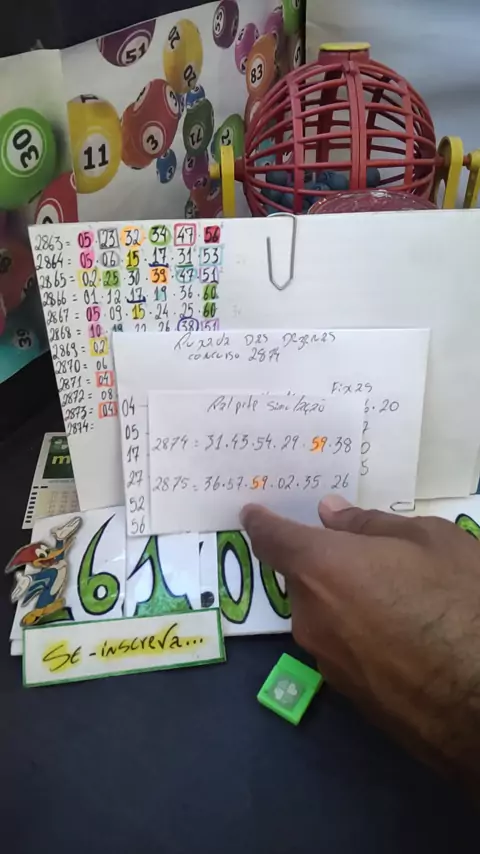 51
83
30
11
3
2863 = 05 · 23 · 32 · 34 · 47 · 56
2864 = 05 · 06 · 15 · 17 · 31 · 53
2865 = 02 · 25 · 30 · 39 · 47 · 51
2866 = 01 · 12 · 17 · 19 · 36 · 60
2867 = 05 · 09 · 15 · 24 · 25 · 60
2868 = 10
2869 = 02
2870 = 06
2871 = 04
2872 = 08
2873 = 04
2874 =
Puxada Das Dezenas
concurso 2874
Fixas
20
04
05
17
27
52
56
Palpite simulação
2874 = 31 · 43 · 54 · 29 · 59 · 38
2875 = 36 · 57 · 59 · 02 · 35 26
61.00
Se-inscreva...